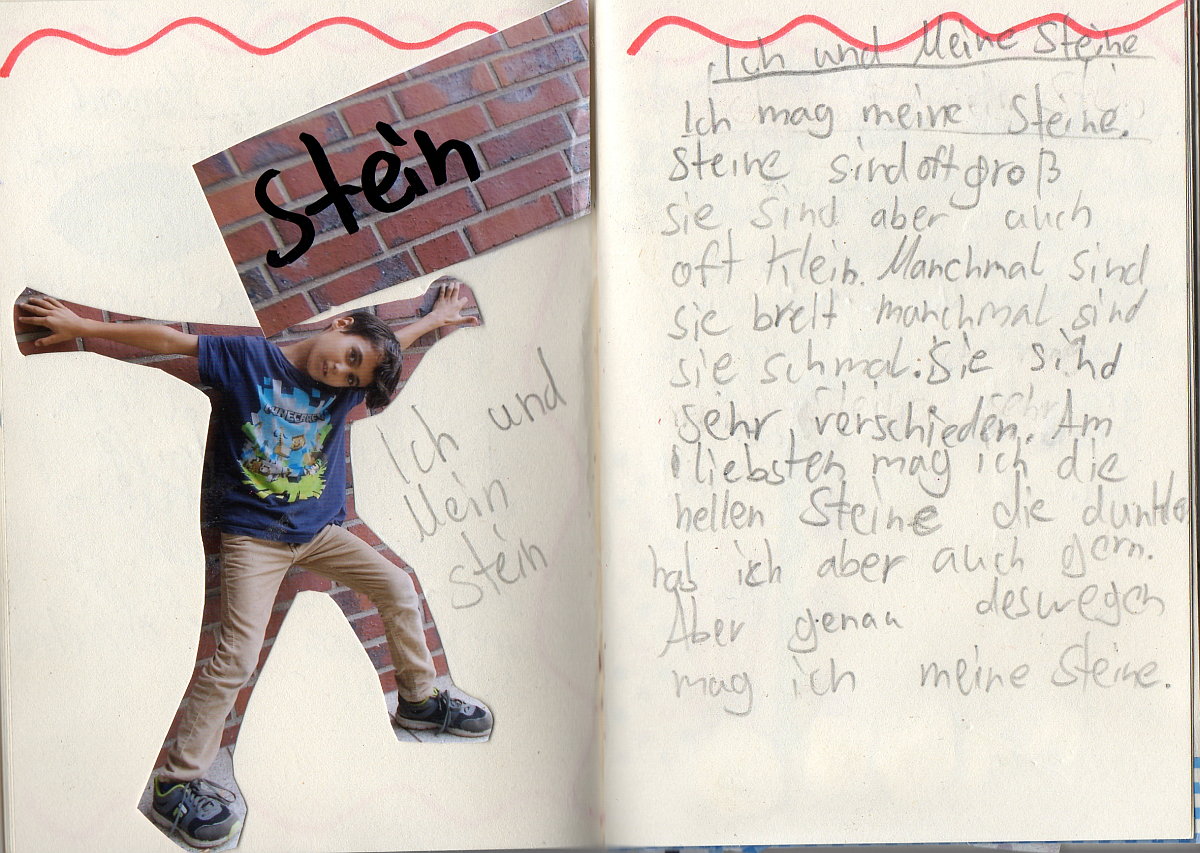 Stein
MINECRAFT
Ich und
Mein
stein
Ich und Meine Steine
Ich mag meine Steine.
Steine sind oft groß
sie sind aber auch
oft klein. Manchmal sind
sie breit manchmal sind
sie schmal. Sie sind
sehr verschieden. Am
liebsten mag ich die
hellen Steine die dunkle
hab ich aber auch gern.
Aber genau deswegen
mag ich meine Steine.